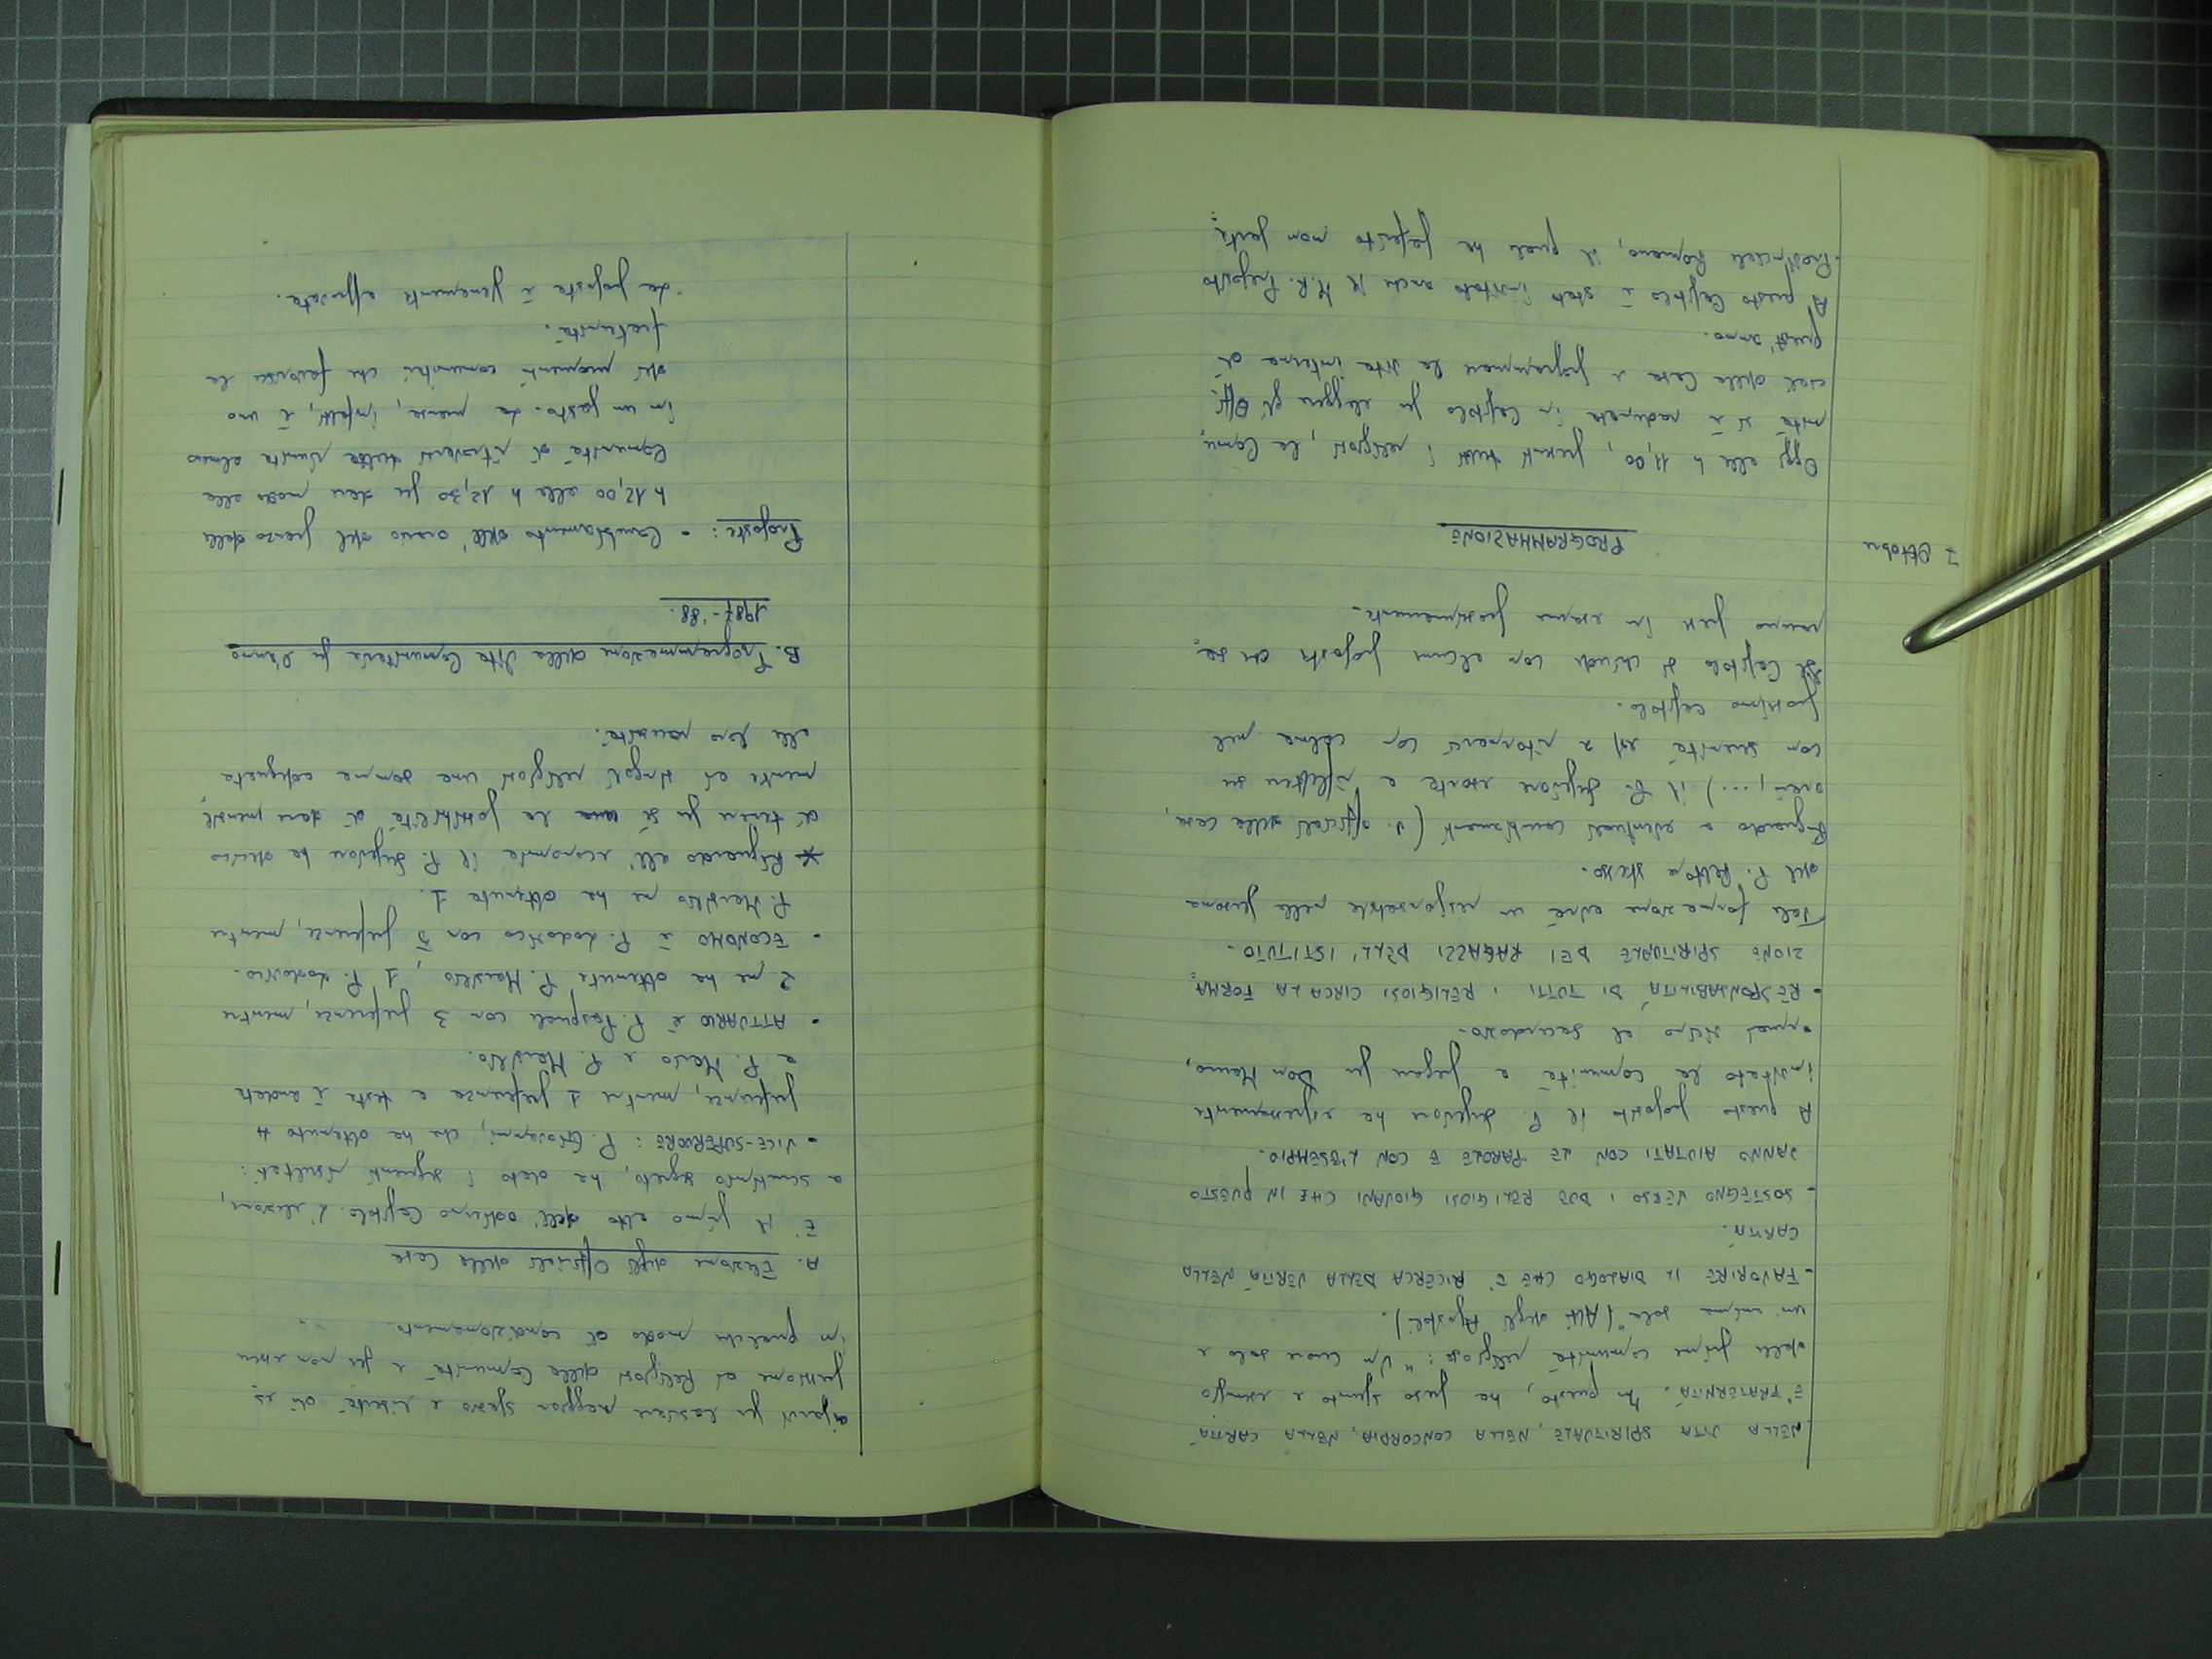 NELLA VITA SPIRITUALE, NELLA CONCORDIA, NELLA CARITÀ
E FRATERNITÀ. In questo, ha preso spunto e esempio
dalla prima comunità religiosa: "Un cuore solo e
un'anima sola" (Atti degli Apostoli).
- FAVORIRE IL DIALOGO CHE È RICERCA DELLA VERITÀ NELLA
CARITÀ.
- SOSTEGNO VERSO I DUE RELIGIOSI GIOVANI CHE IN QUESTO
VANNO AIUTATI CON LE PAROLE E CON L'ESEMPIO.
A questo proposito il P. Superiore ha espressamente
invitato la comunità a pregare per Don Mauro,
ormai vicino al sacerdozio.
• RESPONSABILITÀ DI TUTTI I RELIGIOSI CIRCA LA FORMA-
ZIONE SPIRITUALE DEI RAGAZZI DELL'ISTITUTO.
Tale formazione avrà un responsabile nella persona
del P. Rettore stesso.
Riguardo a eventuali cambiamenti (v. officiali della casa,
orari, ...) il P. Superiore esorta a riflettere su
con serenità ed a ritornarvi con calma nel
prossimo capitolo.
Il Capitolo si chiude con alcune proposte che sa-
ranno prese in esame prossimamente.
7 Ottobre
PROGRAMMAZIONE
Oggi alle h 11,00, presenti tutti i religiosi, la Comu-
nità si è radunata in Capitolo per eleggere gli Offi-
ciali della Casa e programmare la vita interna di
quest'anno.
A questo Capitolo è stato invitato anche il M.R. Preposto
Provinciale Romano, il quale ha preferito non parte-
ciparvi per lasciare maggior spazio e libertà di es-
pressione ai Religiosi della Comunità e per non essere
in qualche modo di condizionamento.
A. Elezione degli Officiali della Casa
È il primo atto dell'odierno Capitolo. L'elezione,
a scrutinio segreto, ha dato i seguenti risultati:
• VICE-SUPERIORE: P. Giovanni, che ha ottenuto 4
preferenze, mentre 1 preferenza a testa è andata
a P. Mario e P. Maurizio.
• ATTUARIO è P. Pasquale con 3 preferenze, mentre
2 ne ha ottenute P. Maurizio, 1 P. Lodovico.
• ECONOMO è P. Lodovico con 5 preferenze, mentre
P. Maurizio ne ha ottenuta 1.
* Riguardo all'economia il P. Superiore ha deciso
di tenere per sé la possibilità di dare mensil-
mente ai singoli religiosi una somma adeguata
alle loro necessità.
B. Programmazione della Vita Comunitaria per l'anno
1987-'88.
Proposte: • Cambiamento dell'orario del pranzo dalle
h 12,00 alle h 12,30 per dare modo alla
Comunità di ritrovarsi tutta riunita almeno
in un pasto. La mensa, infatti, è uno
dei momenti comunitari che favorisce la
fraternità.
La proposta è pienamente approvata.